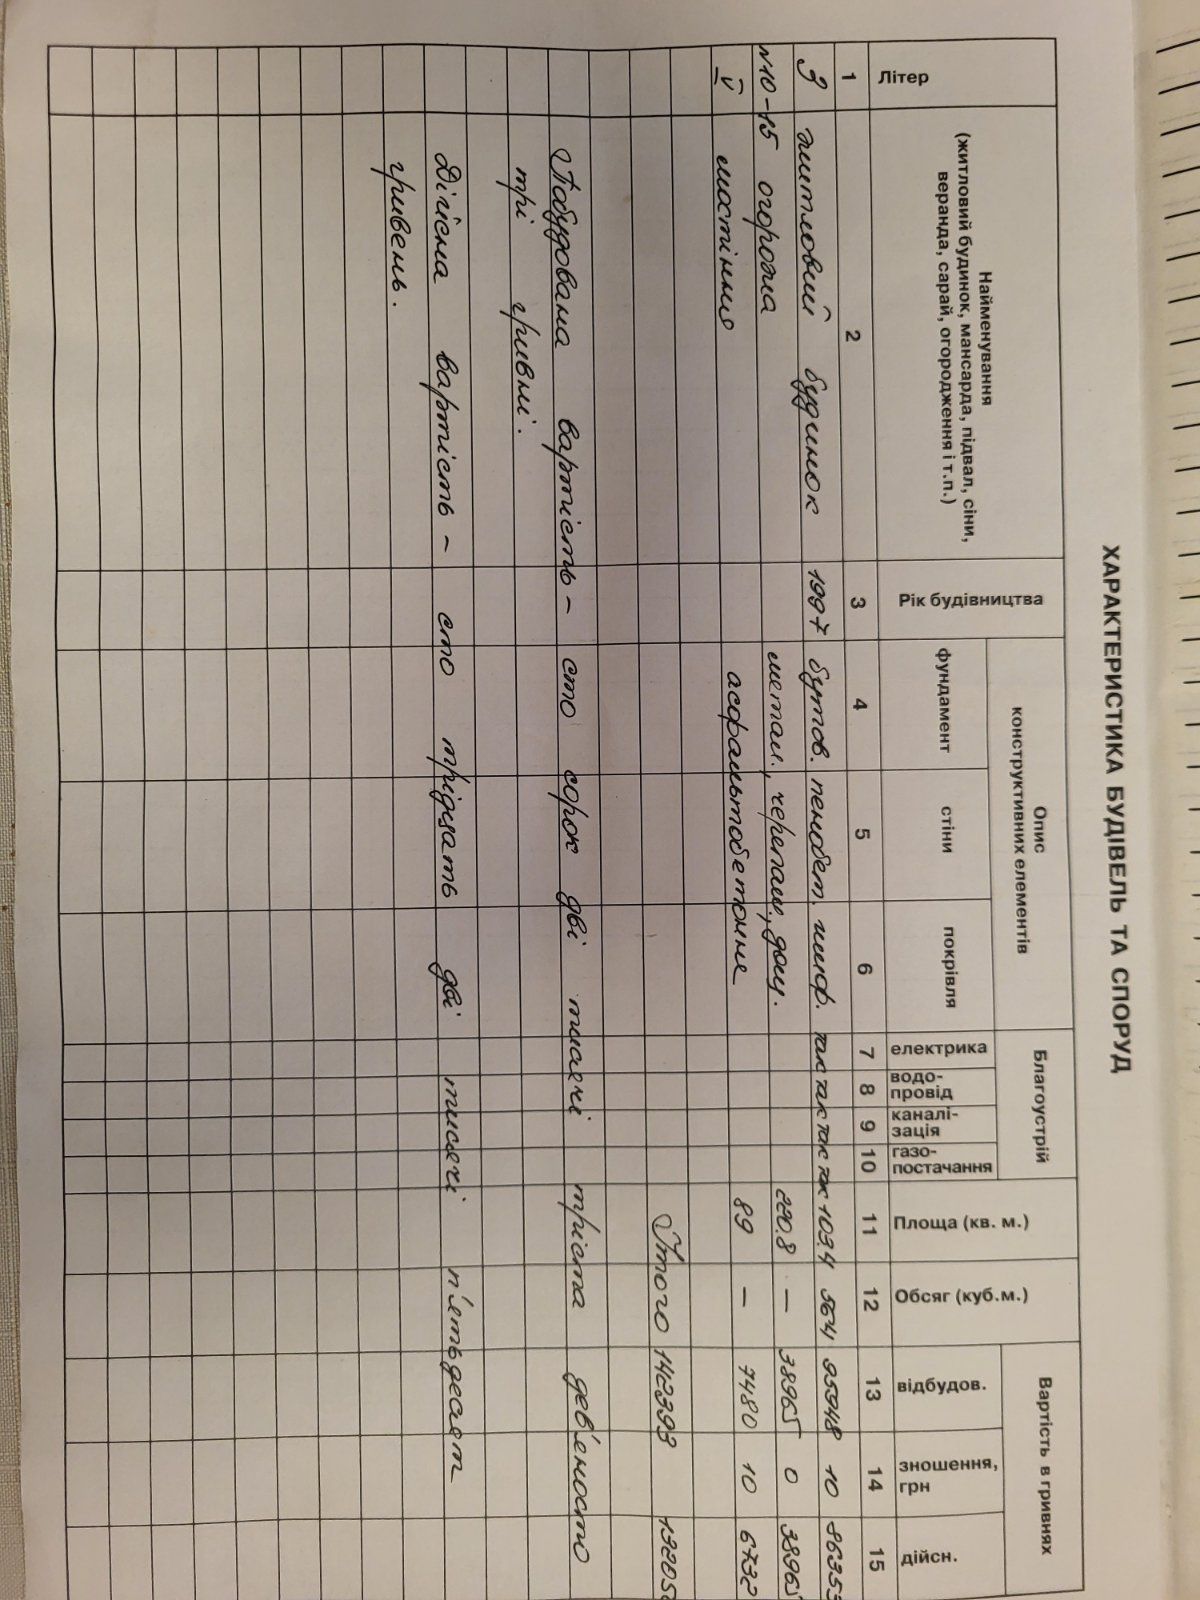 ХАРАКТЕРИСТИКА БУДІВЕЛЬ ТА СПОРУД
Літер
Найменування
(житловий будинок, мансарда, підвал, сіни,
веранда, сарай, огородження і т.п.)
Рік будівництва
Опис
конструктивних елементів
фундамент
стіни
покрівля
Благоустрій
електрика
водо-
провід
каналі-
зація
газо-
постачання
Площа (кв. м.)
Обсяг (куб.м.)
Вартість в гривнях
відбудов.
зношення,
грн
дійсн.
1 2 3 4 5 6 7 8 9 10 11 12 13 14 15
З житловий будинок 1997 бутов. пенобет. шиф. так так так так 103.4 364 95948 10 86353
N10-15 огорожа метал., черепаш., дощ. 220.8 — 38965 0 38965
V мостіння асфальтобетонне 89 — 7480 10 6732
Утого 142393 132050
Побудована вартість – сто сорок дві тисячі триста дев'яносто
три гривні.
Дійсна вартість – сто трідцать дві тисячі п'ятьдесят
гривень.